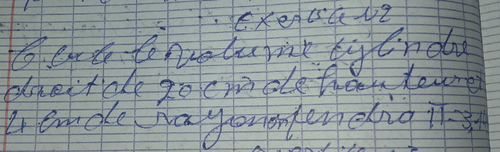 Exercice N2
Calcule le volume cylindre
droit de 20 cm de hauteur et
4 cm de rayon on prendra π=3,1